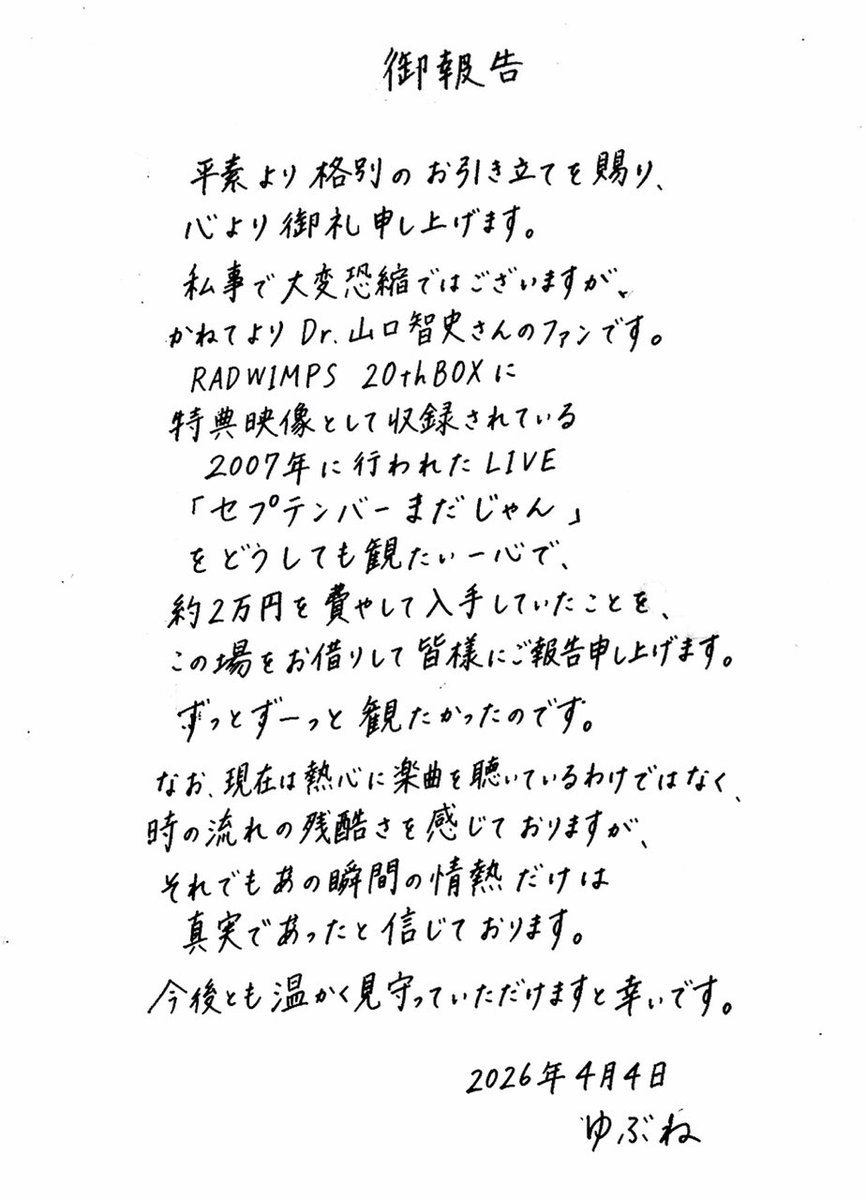 御報告
平素より格別のお引き立てを賜り、
心より御礼申し上げます。
私事で大変恐縮ではございますが、
かねてよりDr.山口智史さんのファンです。
RADWIMPS 20thBOXに
特典映像として収録されている
2007年に行われたLIVE
「セプテンバーまだじゃん」
をどうしても観たい一心で、
約2万円を費やして入手していたことを、
この場をお借りして皆様にご報告申し上げます。
ずっとずーっと観たかったのです。
なお、現在は熱心に楽曲を聴いているわけではなく、
時の流れの残酷さを感じておりますが、
それでもあの瞬間の情熱だけは
真実であったと信じております。
今後とも温かく見守っていただけますと幸いです。
2026年4月4日
ゆぶね